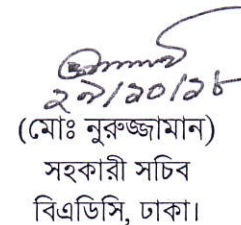 ২৯/১০/১৮
(মোঃ নুরুজ্জামান)
সহকারী সচিব
বিএডিসি, ঢাকা।